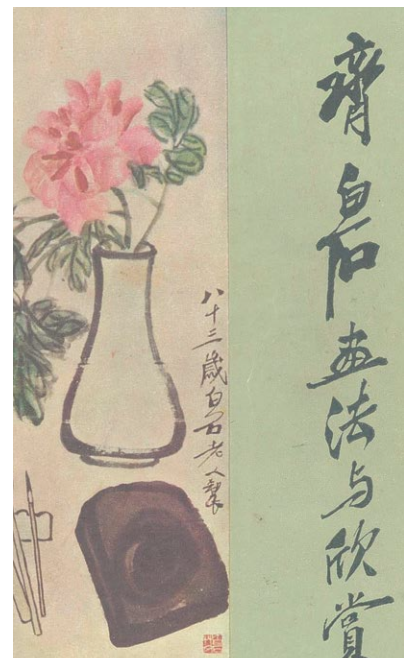 齊白石画法与欣赏
八十三歲白石老人製